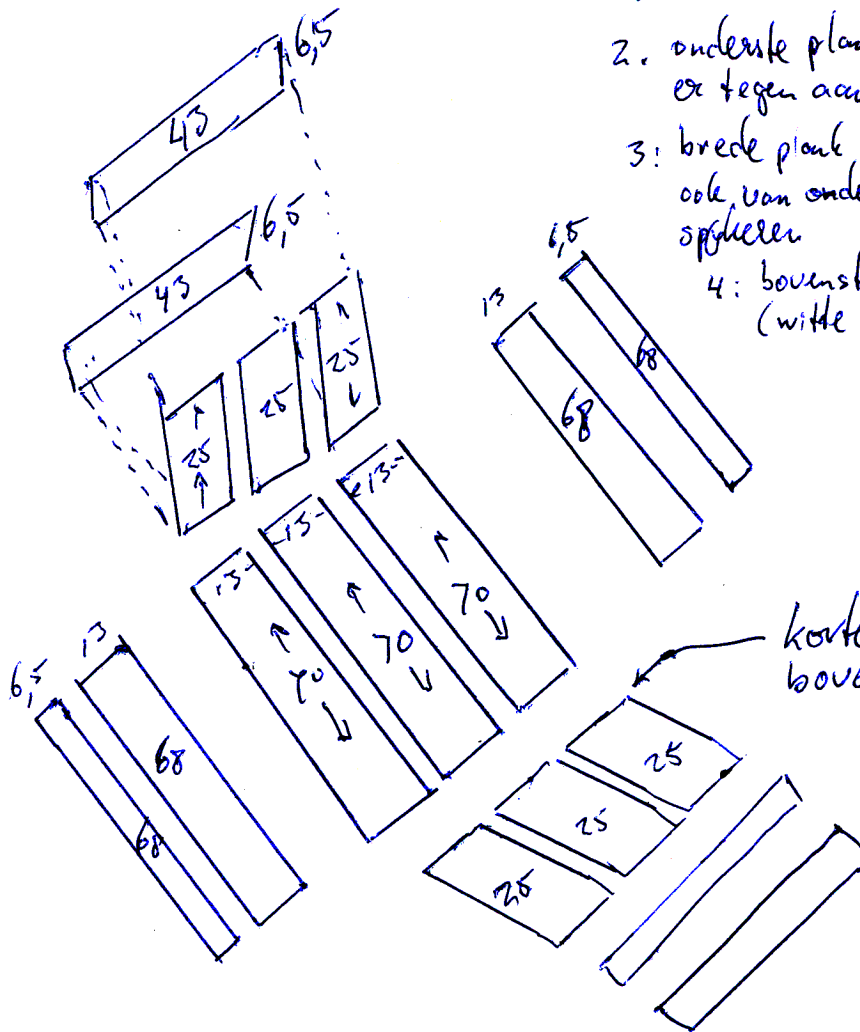 2. onderste plan
er tegen aan
3: brede plank
ook van onde
spijkeren
4: bovenst
(witte
6,5
43
6,5
43
25
25
25
6,5
13
68
68
13
13
13
70
70
70
6,5
13
68
68
korte
bove
25
25
25